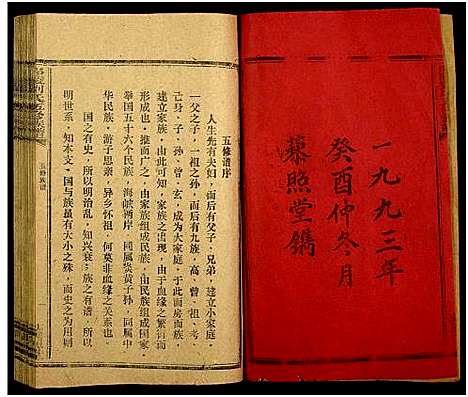 一九九三年
癸酉仲冬月
慕照堂鐫
五修譜序
人生先有夫妇，而后有父子，兄弟，建立小家庭，
一父之子，一祖之孙，而后有九族，高、曾、祖、考、
己身、子、孙、曾、玄，成为大家庭，于此而房而族，
建立家族，由此可知，家族之出现，由于血缘之繁衍而
形成也，推而广之，由家族组成民族，由民族组成国家，
举国五十六个民族，海峡两岸，同属炎黄子孙，同属中
华民族，游子思亲，异乡怀祖，何莫非血缘之关系也。
国之有史，所以明治乱，知兴衰，族之有谱，所以
明世系，知本支，国与族虽有大小之殊，而史之为用则
五修族谱